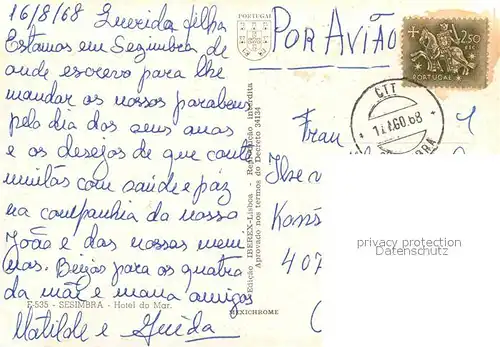 16/8/68 Querida filha
Estamos em Sezimbra de
onde escrevo para lhe
mandar os nossos parabens
pelo dia dos seus anos
e os desejos de que conte
muitos com saúde e paz
na companhia do nosso
João e das nossas meni
nas. Beijos para os quatro
da mãe e mana amigas
Matilde e Guida
E-535 - SESIMBRA - Hotel do Mar.
MEXICHROME
Edição IBEREX-Lisboa - Reprodução interdita
Aprovado nos termos do Decreto 34134
PORTUGAL
POR AVIÃO
2$50
PORTUGAL
CTT
Frau
Ilse
407
privacy protection
Datenschutz